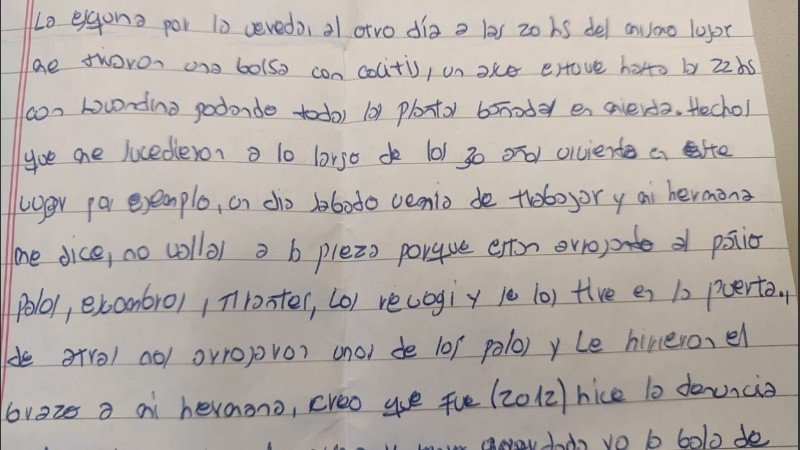 La esquna por la vereda, al otro día a las 20 hs del mismo lugar
me tiraron una bolsa con colitis, un asco estuve hasta la 22 hs
con lavandina podando todas las plantas bañadas en mierda. Hechos
que me sucedieron a lo largo de los 30 años viviendo en este
lugar por ejemplo, un dia sabado venia de trabajar y mi hermana
me dice, no vallas a la pieza porque estan arrojando al patio
palos, escombros, tirantes, los recogi y se los tire en la puerta.,
de atras nos arrojaron unos de los palos y Le hirieron el
brazo a mi hermana, creo que fue (2012) hice la denuncia
yo la bala de